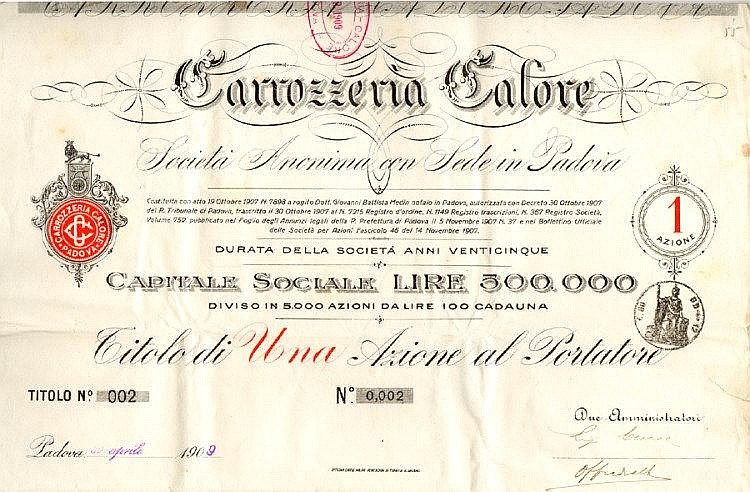 55-
1909
CALORE
Carrozzeria Calore
Società Anonima con Sede in Padova
Costituita con atto 19 Ottobre 1907 N. 7893 a rogito Dott. Giovanni Battista Medin notaio in Padova, autorizzata con Decreto 30 Ottobre 1907
del R. Tribunale di Padova, trascritto il 30 Ottobre 1907 al N. 7215 Registro d'ordine, N. 1149 Registro trascrizioni, N. 367 Registro Società,
Volume 759, pubblicato nel Foglio degli Annunzi legali della R. Prefettura di Padova il 5 Novembre 1907 N. 37 e nel Bollettino Ufficiale
delle Società per Azioni Fascicolo 46 del 14 Novembre 1907.
CARROZZERIA CALORE
CC
PADOVA
1
AZIONE
DURATA DELLA SOCIETÀ ANNI VENTICINQUE
CAPITALE SOCIALE LIRE 500.000
DIVISO IN 5.000 AZIONI DA LIRE 100 CADAUNA
Titolo di Una Azione al Portatore
TITOLO N.º 002
N.º 0,002
Due Amministratori
Padova aprile 1909